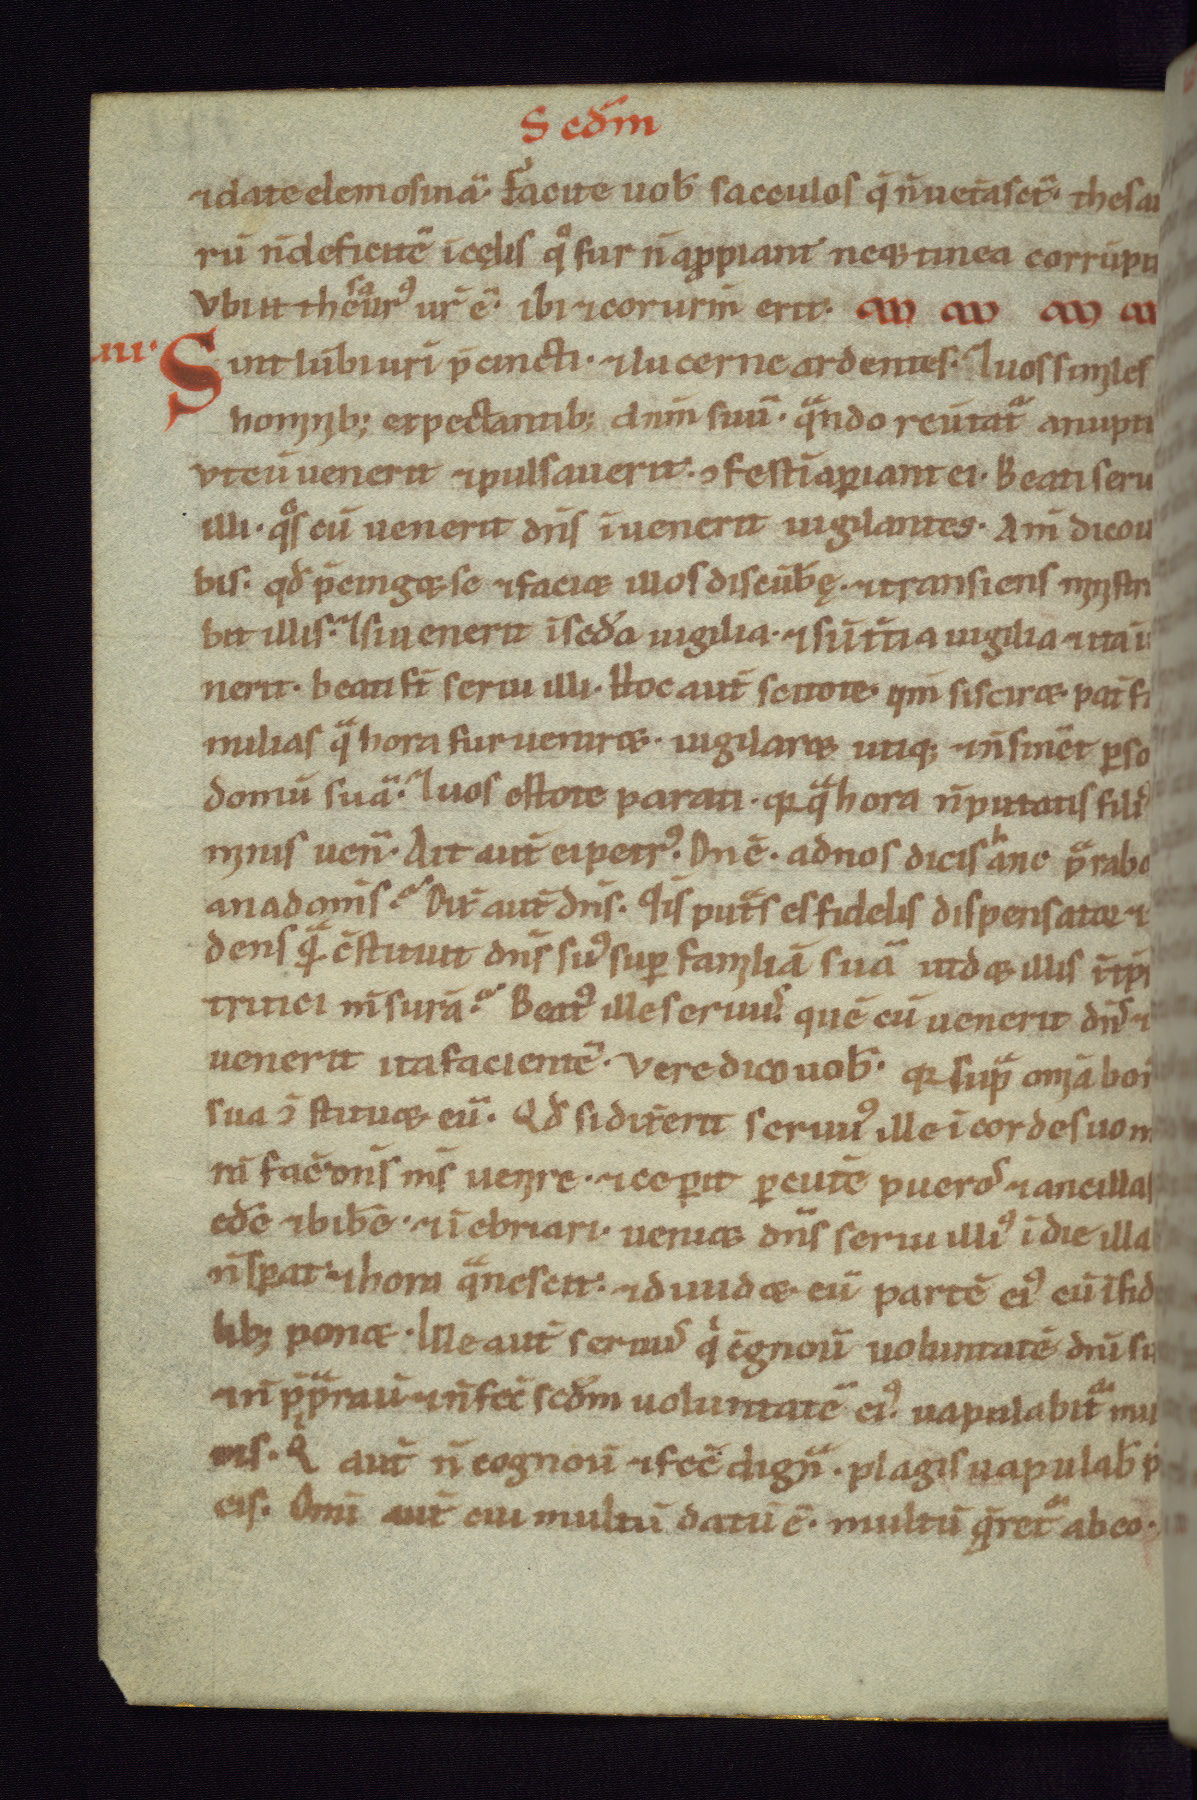 Scdm̄
⁊ date elemosinā. Facite uob̄ sacculos q̄ n̄ uet̄asct̄. thesau
rū n̄ deficitē ī cęlis q° fur n̄ app̄piant neq; tinea corrūpit
Vbi ū thesaur⁹ ur̄ ē. ibi ⁊ cor urm̄ erit.
.iiii. Sint lūbi uri p̄cincti. ⁊ lucerne ardentes. ⁊ uos similes
hominib; expectantib; dnm̄ suū. qᵃndo reūtatᵘʳ a nupti
Vt cū uenerit ⁊ pulsauerit. ɔfestī apiant ei. Beati serui
illi. qᵒs cū uenerit dn̄s īuenerit uigilantes. Am̄ dico uo
bis. qd̄ p̄cinget se ⁊ faciet illos discūbę. ⁊ transiens ministra
bit illis. ⁊ si uenerit ī scd̄a uigilia. ⁊ si ī t̄tia uigilia ⁊ ita īue
nerit. beati st̄ serui illi. Hoc aut̄ scitote. qm̄ si sciret pat̄ fa
milias qᵃ hora fur ueniret. uigilaret utiq; ⁊ n̄ sinēt pso
domū suā. ⁊ uos estote parati. qꝛ qᵃ hora n̄ putatis fili⁹
minis ueñ. Ait aut̄ ei petr⁹. Dn̄e. ad nos dicis hanc pᵃrabo
an ad om̄s. Dix̄ aut̄ dn̄s. Qis putᵃs es fidelis dispensator ⁊
dens quē c̄stituit dn̄s su⁹ sup familiā suā ut det illis ī tp̄
tritici m̄surā. Beat⁹ ille seruus. quē cū uenerit dn̄s ī
uenerit ita facientē. Vere dico uob̄. qꝛ supᵃ omīa bon
sua ɔstituet eū. Qd̄ si dix̄erit seruu⁹ ille ī corde suo m
rā fac̄ dn̄s m̄s uenire. ⁊ ceperit pcutē pueros ⁊ ancillas
ed̄e ⁊ bib̄e. ⁊ īebriari. ueniet dn̄s serui illi⁹ ī die illa
n̄ spat. ⁊ hora qᵃ nescit. ⁊ diuidet eū partē ei⁹ cū īfid
lib; ponet. Ille aut̄ seruus qⁱ c̄gnoū uoluntatē dn̄i su
⁊ n̄ p̄pᵃrauit ⁊ n̄ fec̄ scd̄m uoluntatē ei⁹. uapulabitᵘʳ mul
tis. Qⁱ aut̄ n̄ cognoū ⁊ fec̄ dignᵃ. plagis uapulab̄ p
cis. Omī aut̄ cui multū datū ē. multū q̄retᵘʳ ab eo.